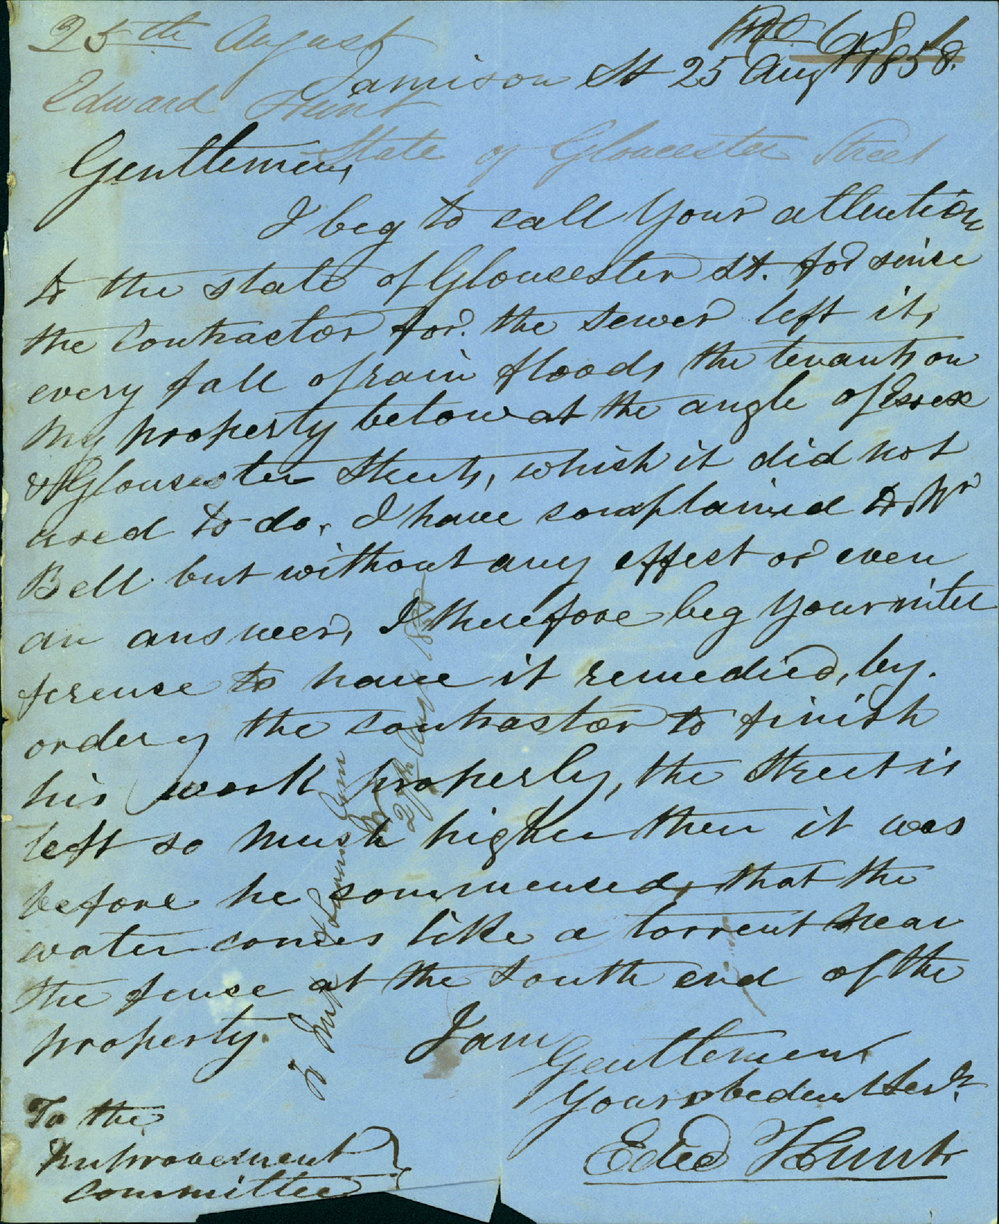 25th August
No 681
Jamison St 25 Augt 1858.
Edward Hunt
State of Gloucester Street
Gentlemen,
I beg to call Your attention
to the state of Gloucester St. for since
the Contractor for the sewer left it,
every fall of rain floods the tenants on
My property below at the angle of Essex
& Gloucester Streets, which it did not
used to do. I have complained to Mr
Bell but without any effect or even
an answer, I therefore beg Your inter
ference to have it remedied, by.
ordering the contractor to finish
his work properly, the Street is
left so much higher then it was
before he commenced, that the
water comes like a torrent near
the fence at the South end of the
property.
I am
Gentlemen
Your obedient Servt.
Edwd Hunt
To the
Improvement
Committee
To Imp
27th Augt 1858